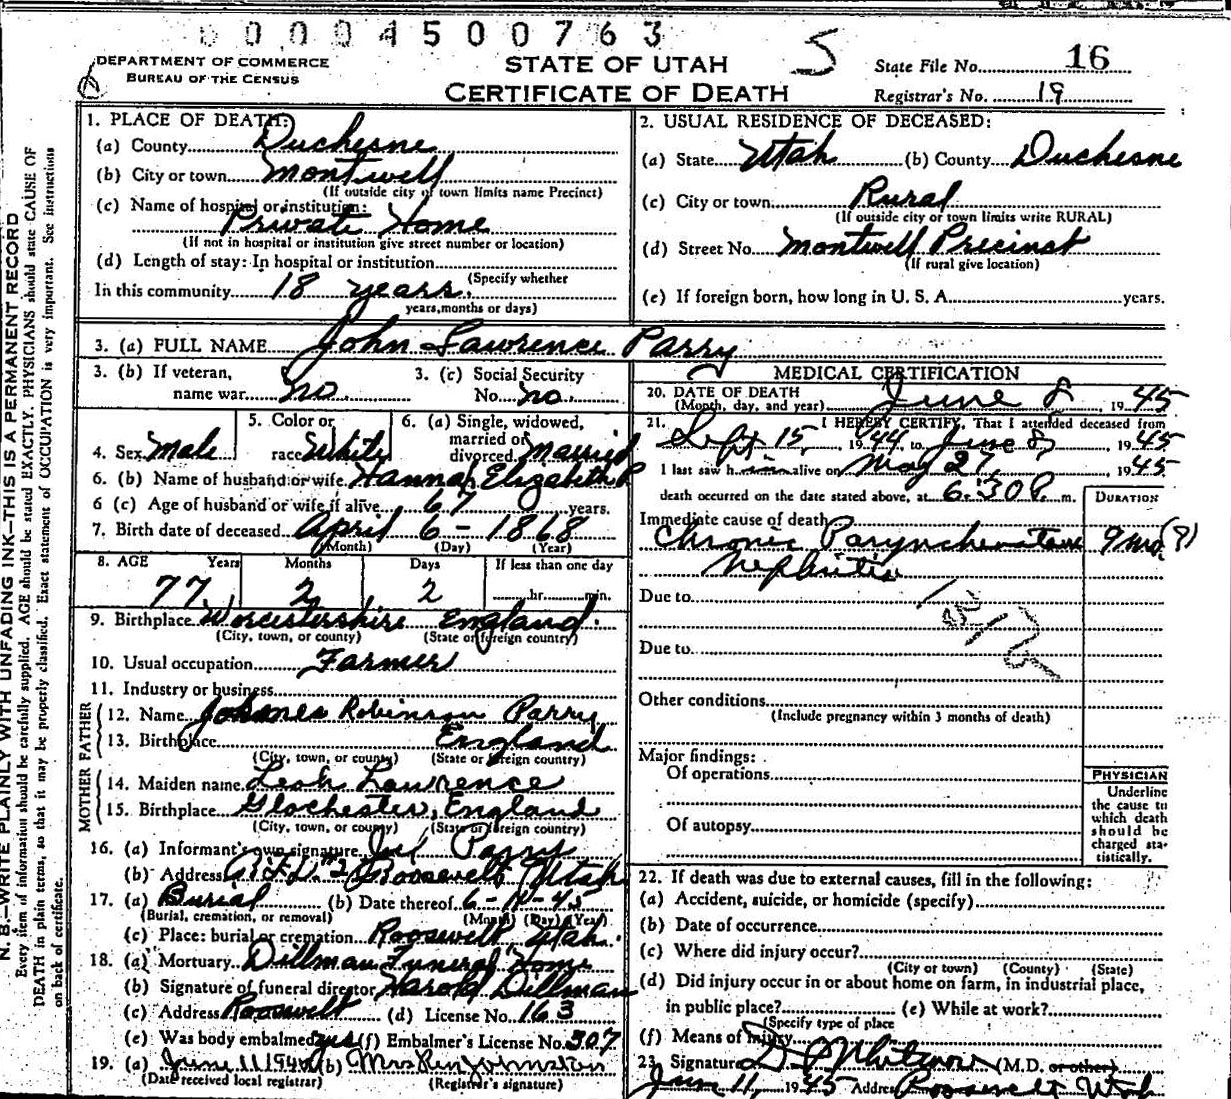 0004500763
DEPARTMENT OF COMMERCE
BUREAU OF THE CENSUS
STATE OF UTAH
CERTIFICATE OF DEATH
5
State File No. 16
Registrar's No. 19
N. B.—WRITE PLAINLY WITH UNFADING INK—THIS IS A PERMANENT RECORD
Every item of information should be carefully supplied. AGE should be stated EXACTLY. PHYSICIANS should state CAUSE OF
DEATH in plain terms, so that it may be properly classified. Exact statement of OCCUPATION is very important. See instructions
on back of certificate.
1. PLACE OF DEATH:
(a) County Duchesne
(b) City or town Montwell
(If outside city or town limits name Precinct)
(c) Name of hospital or institution:
Private Home
(If not in hospital or institution give street number or location)
(d) Length of stay: In hospital or institution
(Specify whether
In this community 18 years.
years, months or days)
2. USUAL RESIDENCE OF DECEASED:
(a) State Utah (b) County Duchesne
(c) City or town Rural
(If outside city or town limits write RURAL)
(d) Street No. Montwell Precinct
(If rural give location)
(e) If foreign born, how long in U. S. A. years.
3. (a) FULL NAME John Lawrence Parry
3. (b) If veteran,
name war. no.
3. (c) Social Security
No. no.
4. Sex Male
5. Color or
race White
6. (a) Single, widowed,
married or
divorced. Married
6. (b) Name of husband or wife. Hannah Elizabeth P
6 (c) Age of husband or wife if alive 67 years.
7. Birth date of deceased April 6 - 1868
(Month) (Day) (Year)
8. AGE Years Months Days If less than one day
77 2 2 hr. min.
9. Birthplace Worcestershire England.
(City, town, or county) (State or foreign country)
10. Usual occupation Farmer
11. Industry or business
FATHER
12. Name Johanes Robinson Parry
13. Birthplace England
(City, town, or county) (State or foreign country)
MOTHER
14. Maiden name Leah Lawrence
15. Birthplace Glochester, England
(City, town, or county) (State or foreign country)
16. (a) Informant's own signature Parry
(b) Address R.F.D. #2 Roosevelt Utah
17. (a) Burial (b) Date thereof 6-11-45
(Burial, cremation, or removal) (Month) (Day) (Year)
(c) Place: burial or cremation Roosevelt Utah.
18. (a) Mortuary Dillman Funeral Home
(b) Signature of funeral director Harold Dillman
(c) Address Roosevelt (d) License No. 163
(e) Was body embalmed yes (f) Embalmer's License No. 307
19. (a) June 11 (b) Mrs Johnston
(Date received local registrar) (Registrar's signature)
MEDICAL CERTIFICATION
20. DATE OF DEATH
(Month, day, and year) June 8 1945
21. I HEREBY CERTIFY, That I attended deceased from
Sept 15, 1944, to June 8, 1945
I last saw him alive on May 27, 1945
death occurred on the date stated above, at 6:30 P. m.
DURATION
Immediate cause of death
Chronic 9 mo (?)
Nephritis
Due to
Due to
Other conditions
(Include pregnancy within 3 months of death)
Major findings:
Of operations
Of autopsy
PHYSICIAN
Underline
the cause to
which death
should be
charged sta-
tistically.
22. If death was due to external causes, fill in the following:
(a) Accident, suicide, or homicide (specify)
(b) Date of occurrence
(c) Where did injury occur?
(City or town) (County) (State)
(d) Did injury occur in or about home on farm, in industrial place,
in public place? (e) While at work?
(Specify type of place
(f) Means of Injury
23. Signature (M.D. or other)
June 11, 1945 Address Roosevelt Utah